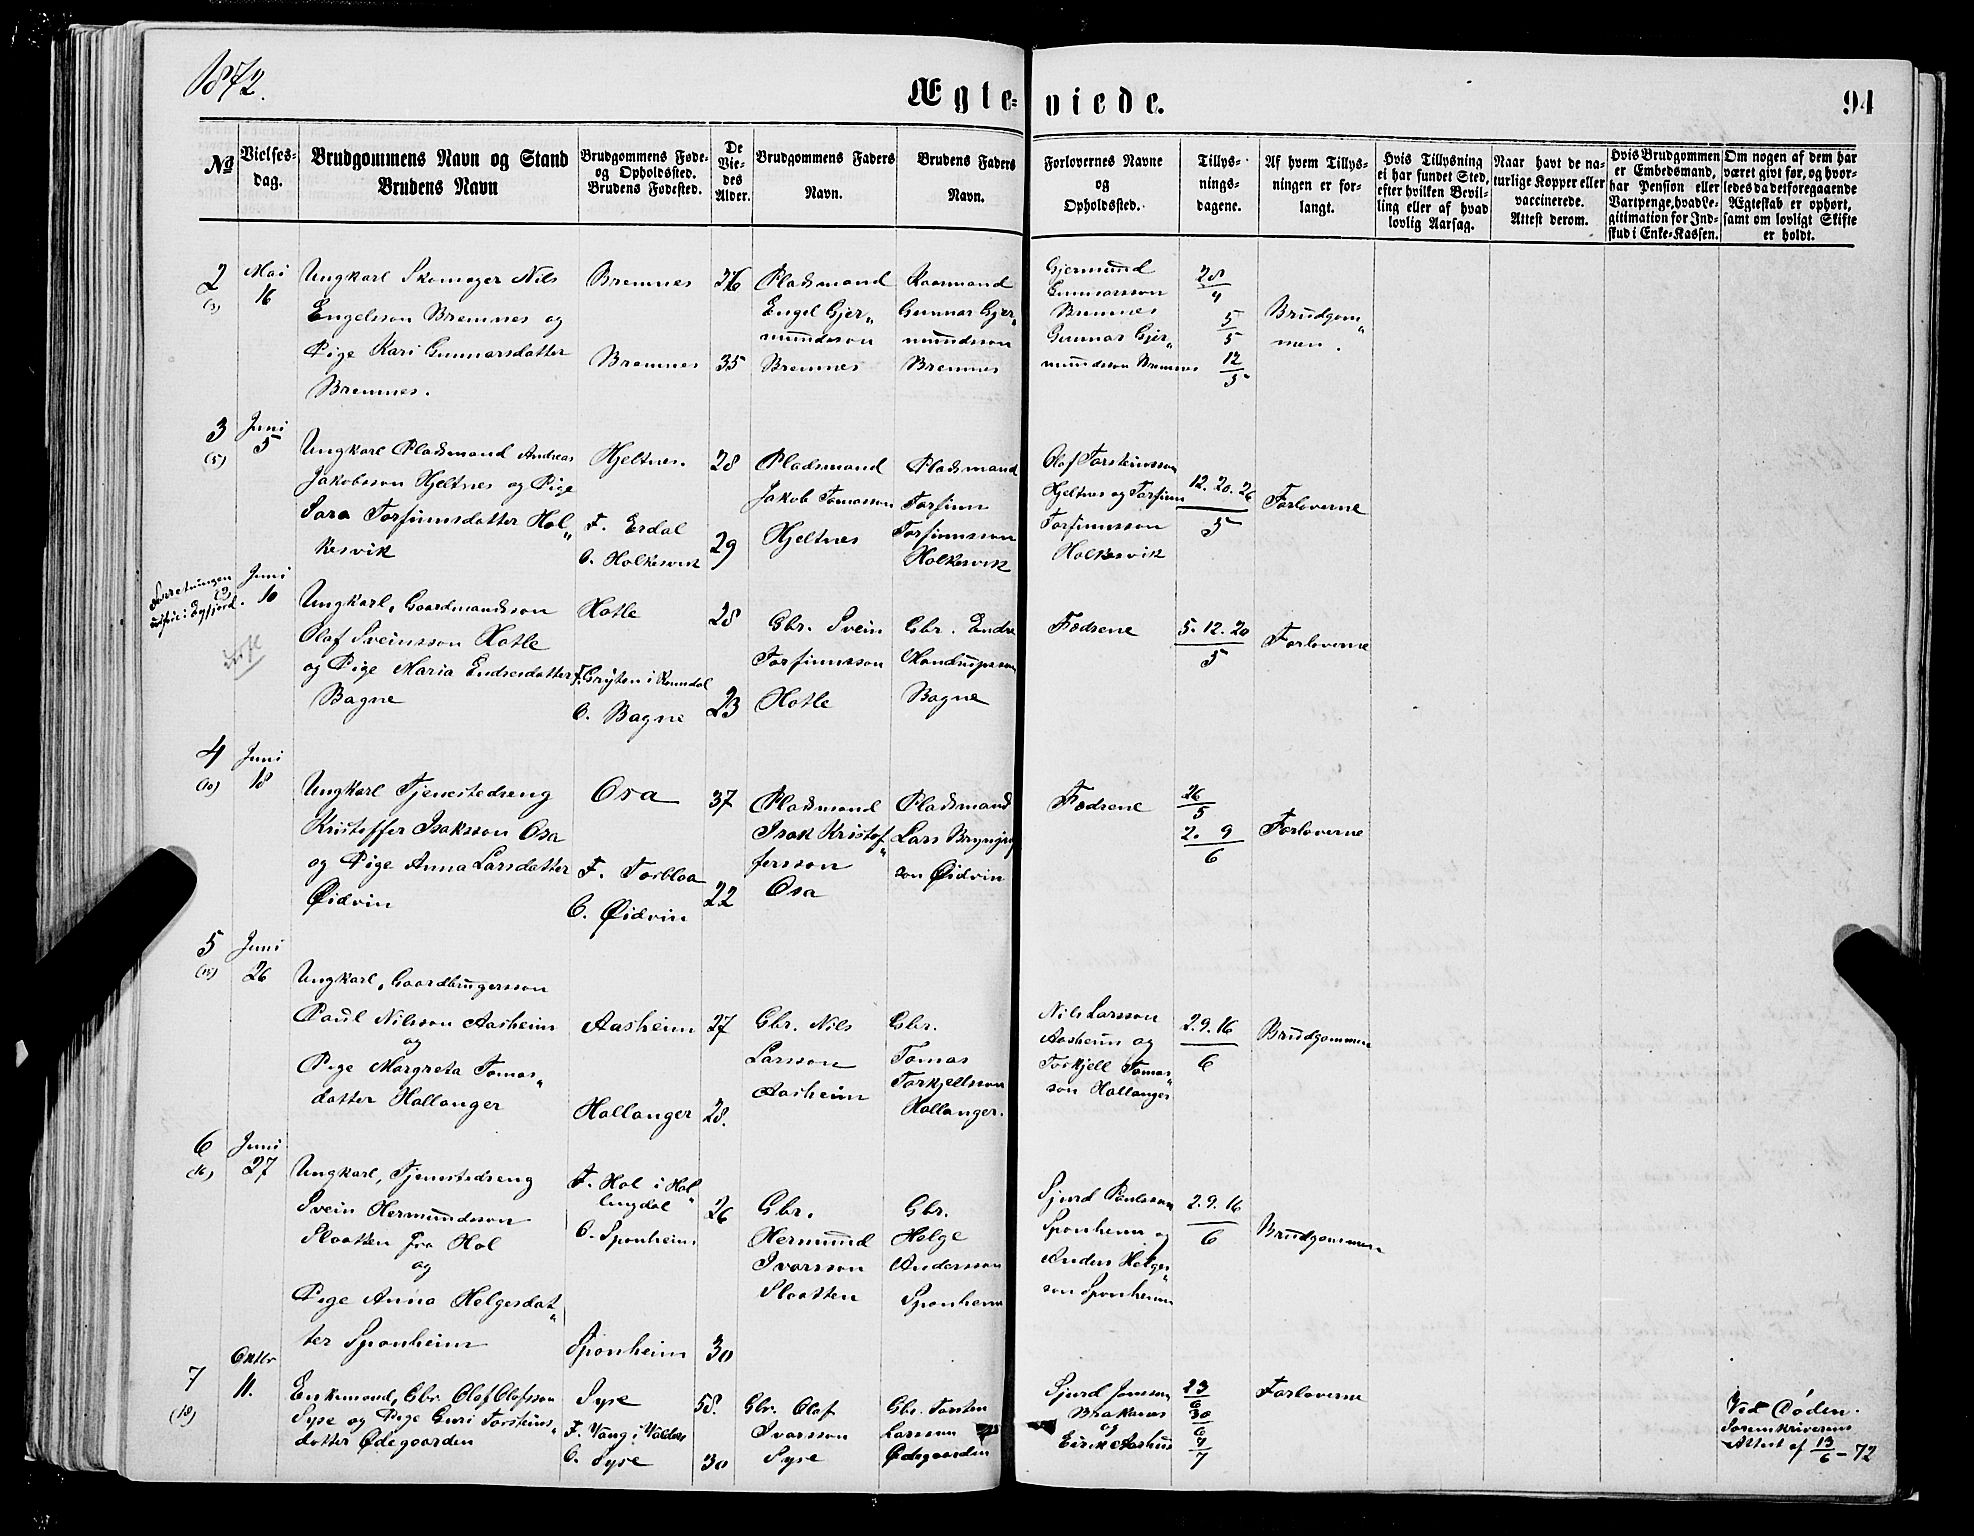 1872.
Ægte-viede.
94
No
Vielses-dag.
Brudgommens Navn og Stand
Brudens Navn
Brudgommens Føde-
og Opholdssted.
Brudens Fødested.
De
Vie-
des
Alder.
Brudgommens Faders
Navn.
Brudens Faders
Navn.
Forlovernes Navne
og
Opholdssted.
Tillys-
nings-
dagene.
Af hvem Tillys-
ningen er for-
langt.
Hvis Tillysning
ei har fundet Sted,
efter hvilken Bevil-
ling eller af hvad
lovlig Aarsag.
Naar havt de na-
turlige Kopper eller
vaccinerede.
Attest derom.
Hvis Brudgommen
er Embedsmand,
har Pension eller
Vartpenge, hvad Le-
gitimation for Ind-
skud i Enke-Kassen.
Om nogen af dem har
været givt før, og hvor-
ledes da det foregaaende
Ægteskab er ophørt,
samt om lovligt Skifte
er holdt.
2
(3)
Mai
16
Ungkarl Skomager Nils
Engelsson Bremnes og
Pige Kari Gunnarsdatter
Bremnes.
Bremnes
Bremnes
36
35
Pladsmand
Engel Gjer„
mundsson
Bremnes
Kaarmand
Gunnar Gjer„
mundsson
Bremnes
Gjermund
Gunnarsson
Bremnes
Gunnar Gjer„
mundsson Bremnes
28/4
5/5
12/5
Brudgom„
men.
3
(5)
Juni
5
Ungkarl Pladsmand Andreas
Jakobsson Hjeltnes og Pige
Sara Torfinnsdatter Hol„
kesvik
Hjeltnes.
F. Erdal
O. Holkesvik
28
29
Pladsmand
Jakob Tomasson
Hjeltnes
Pladsmand
Torfinn
Torfinnsson
Holkesvik
Olaf Torsteinsson
Hjeltnes og Torfinn
Torfinnsson
Holkesvik
12. 20. 26
5
Forloverne
Forretningen
udført i Eyfjord.
(9)
Juni
10
Ungkarl, Gaardmandsson
Olaf Sveinsson Hotle
og Pige Maria Endresdatter
Bagne
Hotle
F. Gryten i Romsdal
O. Bagne
28
23
Gbr. Svein
Torfinnsson
Hotle
Gbr. Endre
Bagne
Fædrene
5. 12. 20
5
Forloverne
4
(10)
Juni
18
Ungkarl Tjenestedreng
Kristoffer Isaksson Osa
og Pige Anna Larsdatter
Øidvin
Osa
F. Torblaa
O. Øidvin
37
22
Pladsmand
Isak Kristof„
fersson
Osa
Pladsmand
Lars Brynjulf
son Øidvin
Fædrene
26/5
2. 9
6
Forloverne
5
(15)
Juni
26
Ungkarl, Gaardbrugersson
Paul Nilsson Aasheim
og
Pige Margreta Tomas„
datter Hallanger
Aasheim
Hallanger
27
28.
Gbr. Nils
Larsson
Aasheim
Gbr.
Tomas
Torkjellsson
Hallanger.
Nils Larsson
Aasheim og
Torkjell Tomas„
son Hallanger
2. 9. 16
6
Brudgommen
6
(16)
Juni
27
Ungkarl, Tjenestedreng
Svein Hermundsson
Slaatten fra Hol
og
Pige Anna Helgesdat„
ter Sponheim
F. Hol i Hal„
lingdal
O. Sponheim
Sponheim
26
30
Gbr.
Hermund
Ivarsson
Slaatten
Gbr.
Helge
Andersson
Sponheim
Sjurd Paulsson
Sponheim og
Anders Helges„
son Sponheim
2. 9. 16
6
Brudgommen
7
(18)
Oktbr
11.
Enkemand, Gbr Olaf Olafsson
Syse og Pige Guri Torsteins„
datter Ødegaarden
Syse
F. Vang i Valders
O. Syse
58.
30
Gbr. Olaf
Ivarsson
Syse
Gbr. Torsten
Larsson
Ødegaarden
Sjurd Jonsson
Brakenes
og
Eirik Aashus
23/6
30/6
7/7
Forloverne
Ved Døden.
Sorenskriverens
Attest af 13/6 – 72